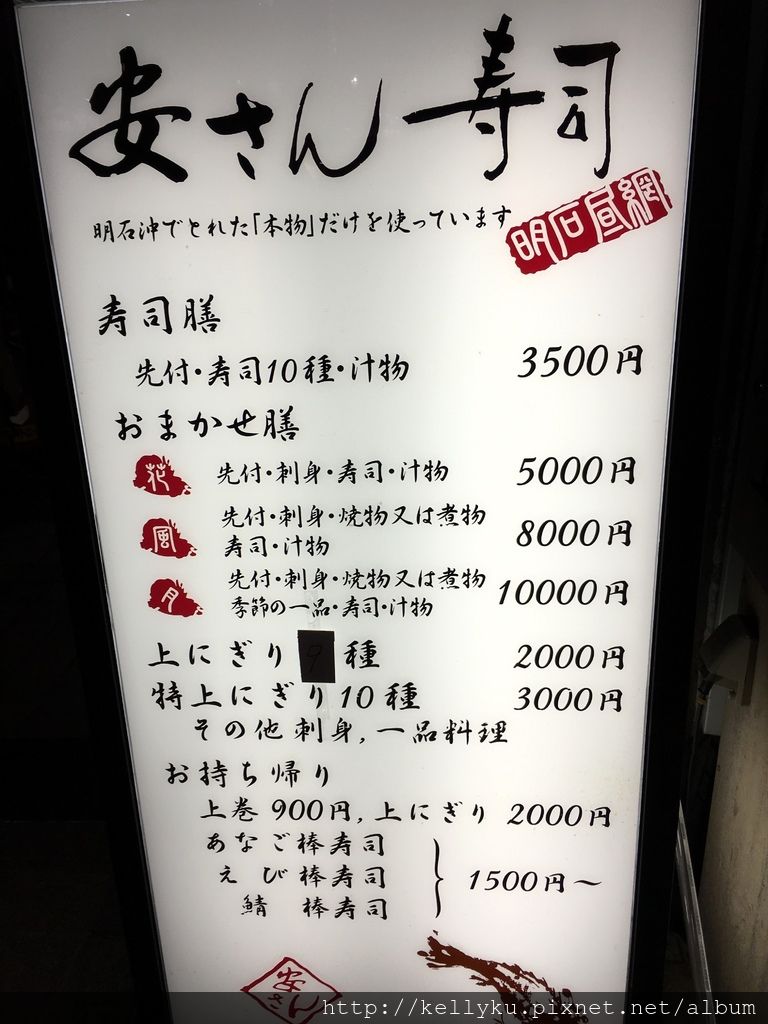 安さん寿司
明石沖でとれた「本物」だけを使っています
明石昼網
寿司膳
先付・寿司10種・汁物 3500円
おまかせ膳
花 先付・刺身・寿司・汁物 5000円
風 先付・刺身・焼物又は煮物
寿司・汁物 8000円
月 先付・刺身・焼物又は煮物
季節の一品・寿司・汁物 10000円
上にぎり9種 2000円
特上にぎり10種 3000円
その他刺身,一品料理
お持ち帰り
上巻900円,上にぎり 2000円
あなご棒寿司
えび棒寿司
鯖 棒寿司
1500円～
安さん
http://kellyku.pixnet.net/album